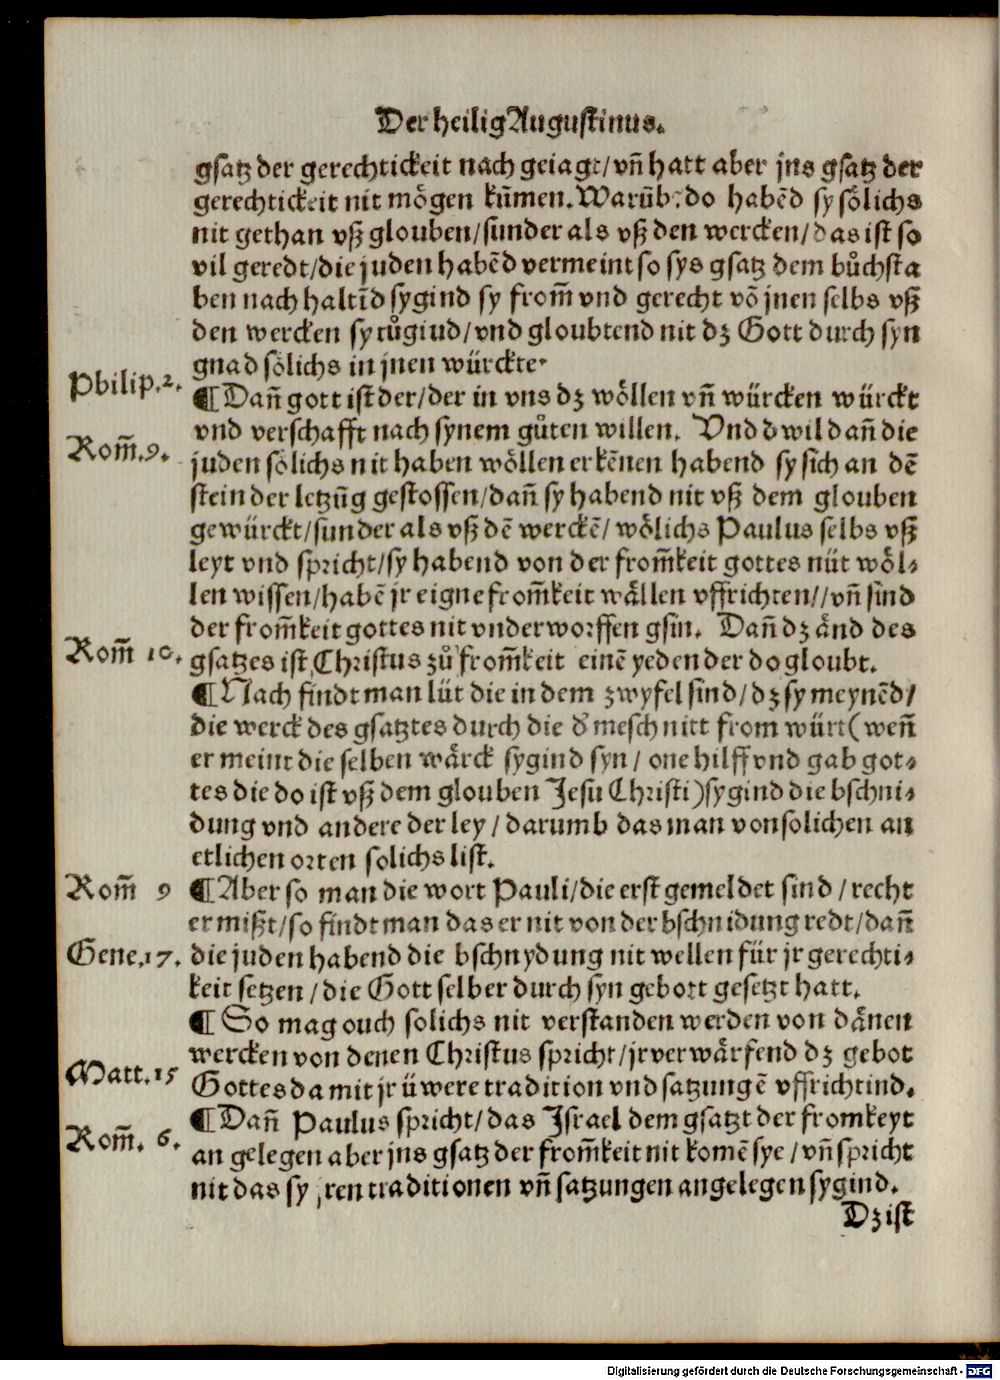 Der heilig Augustinus.
gsatz der gerechtickeit nach geiagt/ vñ hatt aber jns gsatz der
gerechtickeit nit mögen kūmen. Warūb: do habēd sy sölichs
nit gethan vß glouben/ sunder als vß den wercken/ das ist so
vil geredt/ die juden habēd vermeint so sys gsatz dem bůchsta
ben nach haltīd sygind sy from̄ vnd gerecht vō jnen selbs vß
den wercken sy tůgind/ vnd gloubtend nit dz Gott durch syn
gnad sölichs in jnen würckte.
Philip. 2.
¶ Dañ gott ist der/ der in vns dz wöllen vñ würcken würckt
vnd verschafft nach synem gůten willen. Vnd d wil dañ die
Rom̄. 9.
juden sölichs nit haben wöllen erkēnen habend sy sich an dē
stein der letzūg gestossen/ dañ sy habend nit vß dem glouben
gewürckt/ sunder als vß dē werckē/ wölichs Paulus selbs vß
leyt vnd spricht/ sy habend von der from̄keit gottes nüt wöl⸗
len wissen/ habē jr eigne from̄keit wällen vffrichten// vñ sind
der from̄keit gottes nit vnderworffen gsin. Dañ dz änd des
Rom̄ 10.
gsatzes ist Christus zů from̄keit einē yeden der do gloubt.
¶ Nach findt man lüt die in dem zwyfel sind/ dz sy meynēd/
die werck des gsatztes durch die d̕ mesch nitt from würt (weñ
er meint die selben wärck sygind syn/ one hilff vnd gab got⸗
tes die do ist vß dem glouben Jesu Christi) sygind die bschni⸗
dung vnd andere der ley/ darumb das man von solichen an
etlichen orten solichs list.
Rom̄ 9
¶ Aber so man die wort Pauli/ die erst gemeldet sind/ recht
ermißt/ so findt man das er nit von der bschnidung redt/ dañ
Gene. 17.
die juden habend die bschnydung nit wellen für jr gerechti⸗
keit setzen/ die Gott selber durch syn gebott gesetzt hatt.
¶ So mag ouch solichs nit verstanden werden von dänen
wercken von denen Christus spricht/ jr verwärfend dz gebot
Matt. 15
Gottes da mit jr üwere tradition vnd satzungē vffrichtind.
¶ Dañ Paulus spricht/ das Israel dem gsatzt der fromkeyt
Rom̄. 6.
an gelegen aber jns gsatz der from̄keit nit komē sye/ vñ spricht
nit das sy jren traditionen vñ satzungen angelegen sygind.
Dz ist
Digitalisierung gefördert durch die Deutsche Forschungsgemeinschaft - DFG